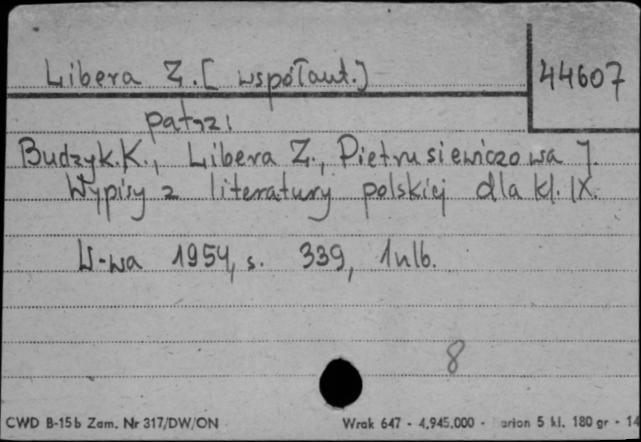 Libera Z. [współaut.]
44607
patrzi
Budzyk.K., Libera Z., Pietrusiewiczowa J.
Wypisy z literatury polskiej dla kl. IX.
W-wa 1954, s. 339, 1nlb.
8
CWD B-15b Zam. Nr 317/DW/ON
Wrak 647 - 4.945.000 - arion 5 kl. 180 gr - 14